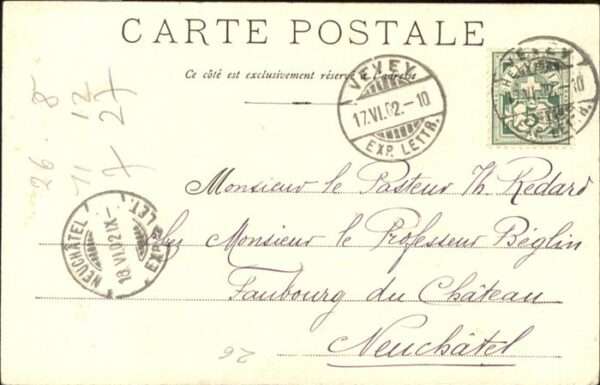 CARTE POSTALE
Ce côté est exclusivement réservé à l'adresse
VEVEY
17.VI.02.-10
EXP. LETTR.
VEVEY
HELVETIA
5
10
26. 8.
11 12
7 27
Monsieur le Pasteur Th. Redard
chez Monsieur le Professeur Béglin
Faubourg du Château
Neuchâtel
NEUCHÂTEL
18.VI.02.IX-
EXP. LET.
26